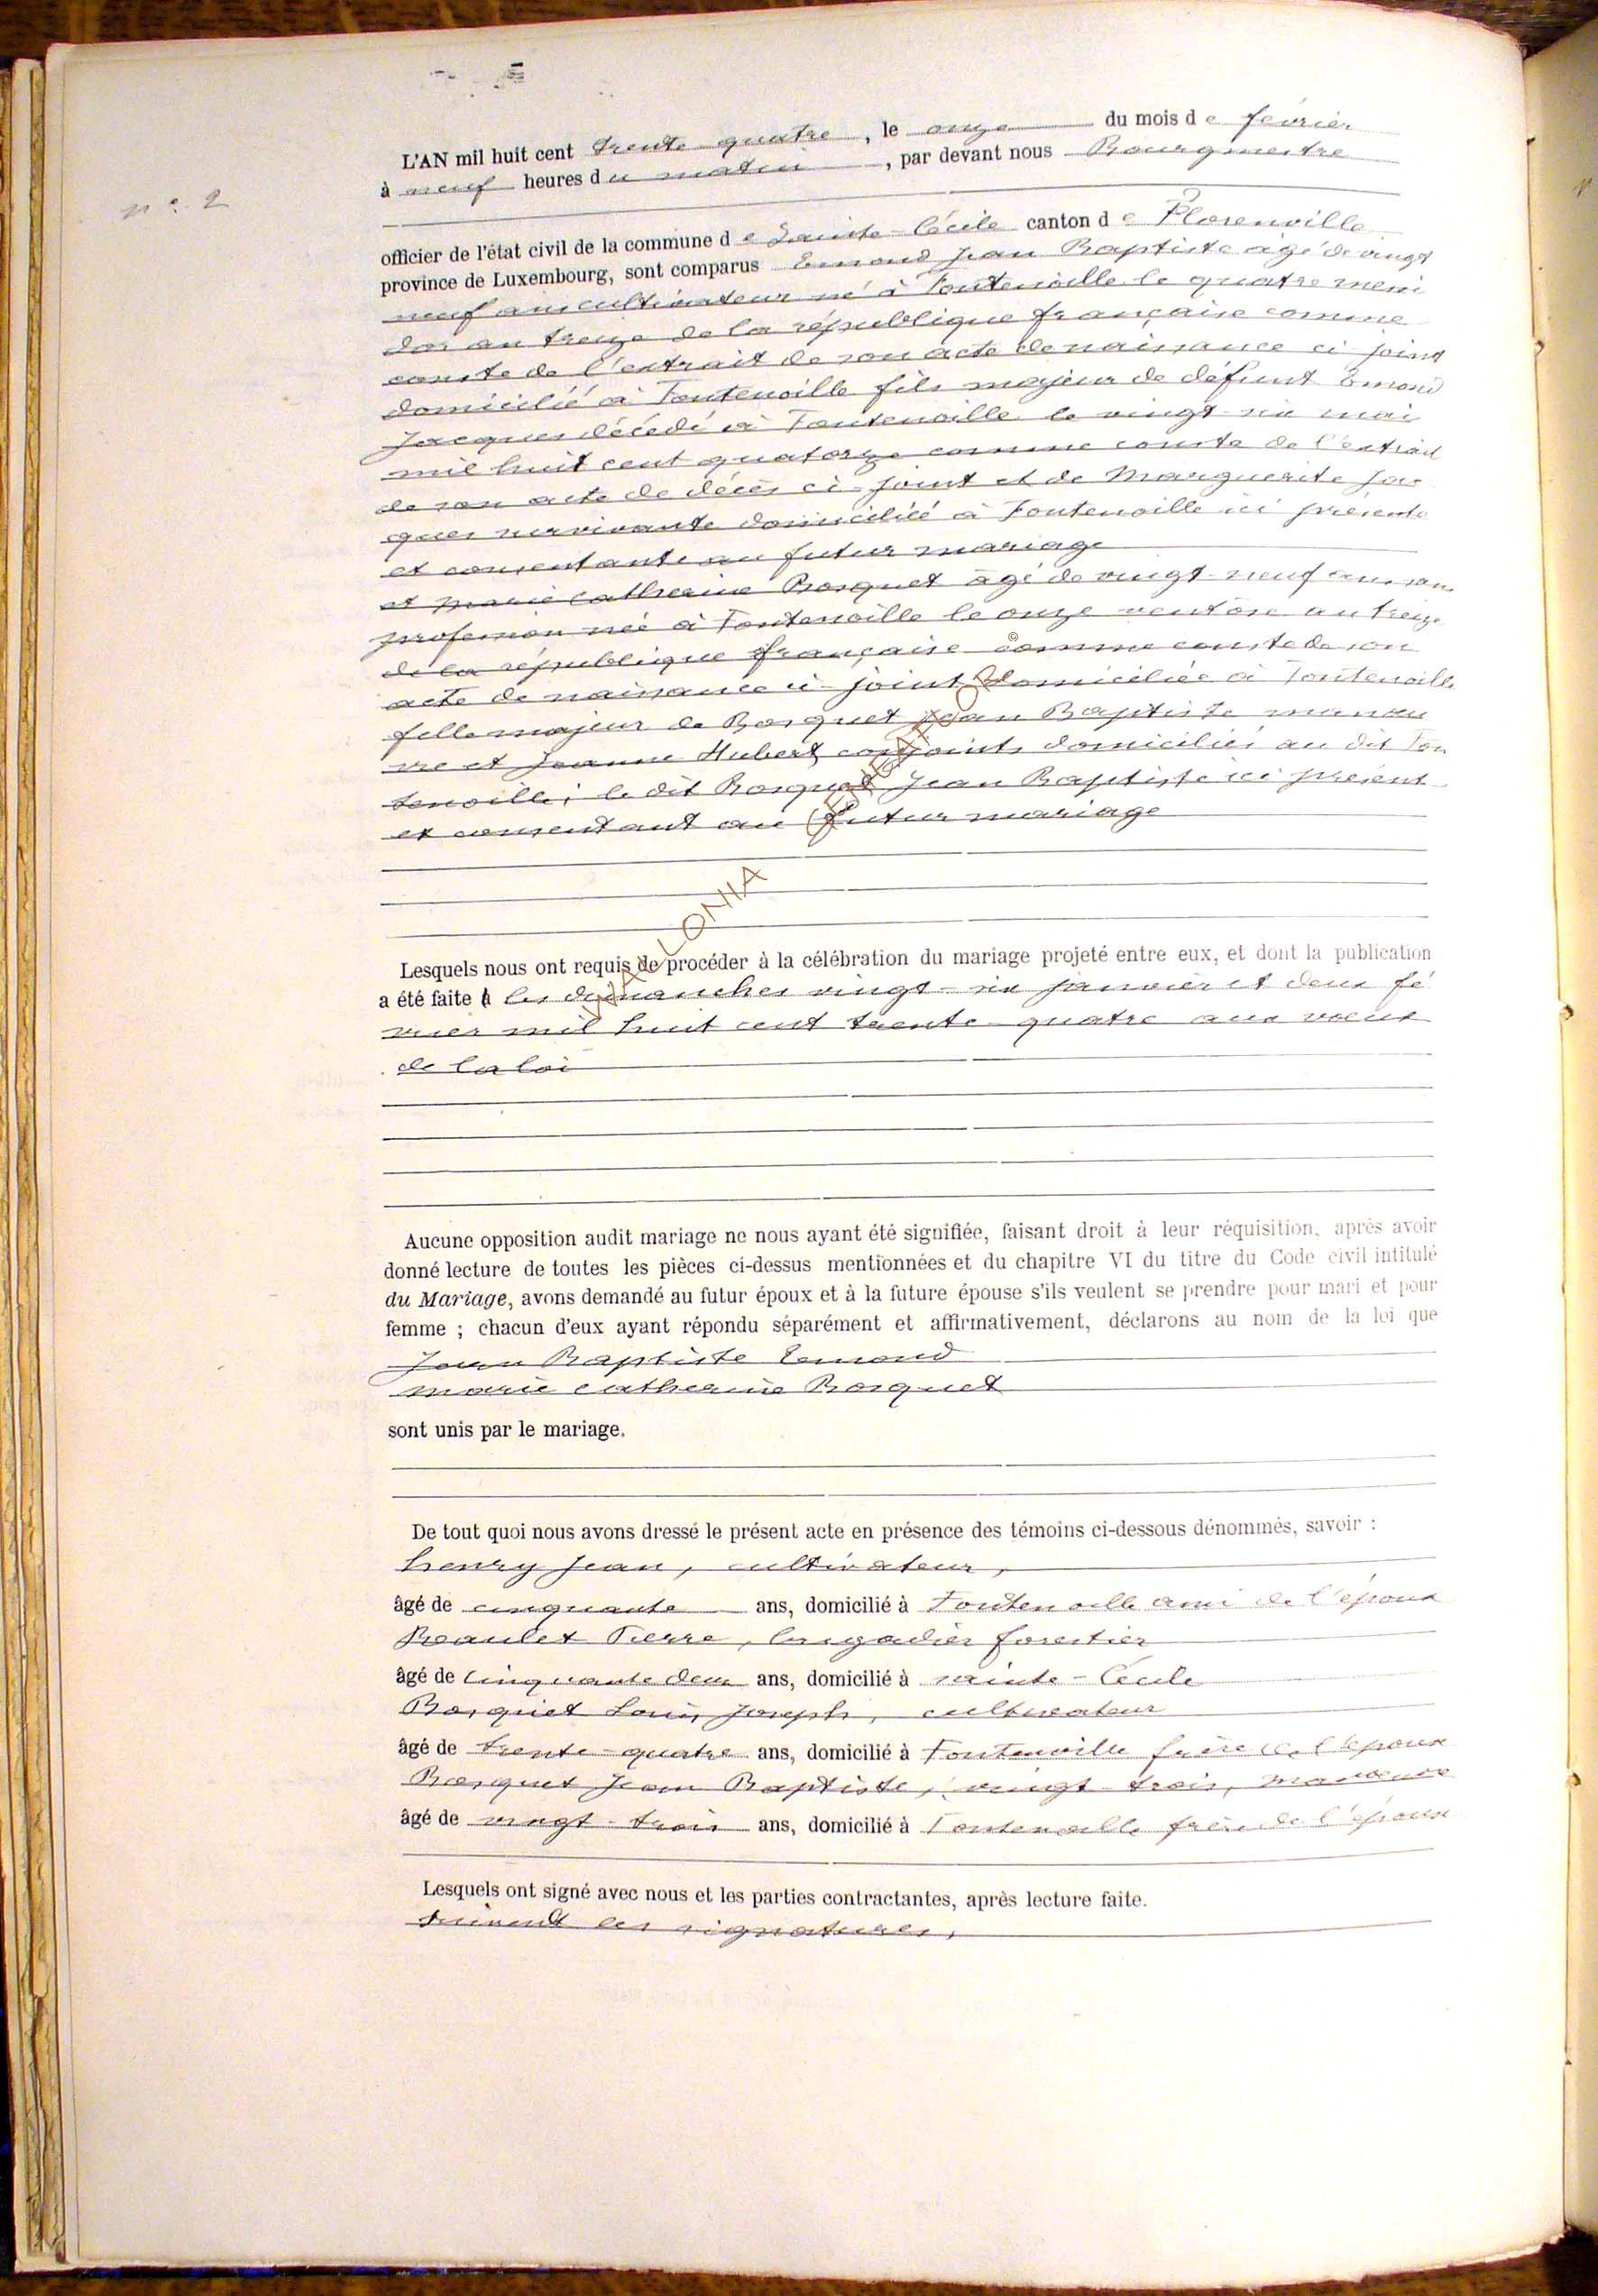 n° 2
L'AN mil huit cent trente quatre, le onze du mois de février
à neuf heures du matin, par devant nous Bourgmestre
officier de l'état civil de la commune de Sainte-Cécile canton de Florenville
province de Luxembourg, sont comparus Emond Jean Baptiste agé de vingt
neuf ans cultivateur né à Fontenoille le quatre messi
dor an treize de la république française comme
conste de l'extrait de son acte de naissance ci joint
domicilié à Fontenoille fils majeur de défunt Emond
Jacques décédé à Fontenoille le vingt-six mai
mil huit cent quatorze comme conste de l'extrait
de son acte de décès ci-joint et de Marguerite Jac
ques survivante domiciliée à Fontenoille ici présente
et consentante au futur mariage
et Marie Catherine Bosquet âgé de vingt-neuf ans sans
profession née à Fontenoille le onze ventôse an treize
de la république française comme conste de son
acte de naissance ci-joint domiciliée à Fontenoille
fille majeur de Bosquet Jean Baptiste manœu
vre et Jeanne Hubert conjoints domiciliés au dit Fon
tenoille; le dit Bosquet Jean Baptiste ici présent
et consentant au futur mariage
Lesquels nous ont requis de procéder à la célébration du mariage projeté entre eux, et dont la publication
a été faite les dimanches vingt-six janvier et deux fé
vrier mil huit cent trente-quatre aux vœux
de la loi
Aucune opposition audit mariage ne nous ayant été signifiée, faisant droit à leur réquisition, après avoir
donné lecture de toutes les pièces ci-dessus mentionnées et du chapitre VI du titre du Code civil intitulé
du Mariage, avons demandé au futur époux et à la future épouse s'ils veulent se prendre pour mari et pour
femme ; chacun d'eux ayant répondu séparément et affirmativement, déclarons au nom de la loi que
Jean Baptiste Emond
Marie Catherine Bosquet
sont unis par le mariage.
De tout quoi nous avons dressé le présent acte en présence des témoins ci-dessous dénommés, savoir :
henry Jean, cultivateur,
âgé de cinquante ans, domicilié à Fontenoille ami de l'époux
Beaulet Pierre, brigadier forestier
âgé de cinquante deux ans, domicilié à sainte-Cécile
Bosquet Louis Joseph, cultivateur
âgé de trente-quatre ans, domicilié à Fontenoille frère de l'époux
Bosquet Jean Baptiste, vingt-trois, manœuvre
âgé de vingt-trois ans, domicilié à Fontenoille frère de l'époux
Lesquels ont signé avec nous et les parties contractantes, après lecture faite.
suivent les signatures,